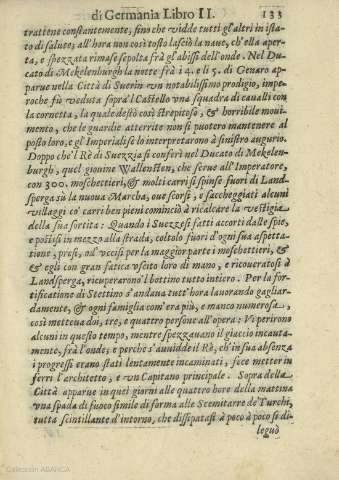 di Germania Libro II. 133
trattiene constantemente, fino che vidde tutti gl'altri in ista-
to di salute; all'hora non così tosto lasciò la naue, ch'ella aper-
ta, e spezzata rimase sepolta frà gl'abissi dell'onde. Nel Du-
cato di Mekelenburgh la notte frà i 4. e li 5. di Genaro ap-
parue nella Città di Suerin vn notabilissimo prodigio, impe-
roche fù veduta sopra'l Castello vna squadra di caualli con
la cornetta, la quale destò così strepitoso, & horribile moui-
mento, che le guardie atterrite non si puotero mantenere al
posto loro, e gl'Imperiali se lo interpretarono à sinistro augurio.
Doppo che'l Rè di Suezzia si conferì nel Ducato di Mekelen-
burgh, quel giouine Wallenstein, che serue all'Imperatore,
con 300. moschettieri, & molti carri si spinse fuori di Land-
sperga sù la nuoua Marcha, oue scorsi, e saccheggiati alcuni
villaggi co' carri ben pieni cominciò à ricalcare la vestigia
della sua sortita: Quando i Suezzesi fatti accorti dalle spie,
e postisi in mezzo alla strada, coltolo fuori d'ogni sua aspetta-
tione, presi, ed vccisi per la maggior parte i moschettieri, &
& egli con gran fatica vscito loro di mano, e ricoueratosi à
Landsperga, ricuperarono'l bottino tutto intiero. Per la for-
tificatione di Stettino s'andaua tutt'hora lauorando gagliar-
damente, & ogni famiglia com'era più, e manco numerosa,
così metteua doi, trè, e quattro persone all'opera: Vi perirono
alcuni in questo tempo, mentre spezzauano il giaccio incauta-
mente, frà l'onde; e perche s'auuidde il Rè, ch'in sua absenza
i progressi erano stati lentamente incaminati, fece metter in
ferri l'architetto, e vn Capitano principale. Sopra della
Città apparue in quei giorni alle quattro hore della mattina
vna spada di fuoco simile di forma alle Scemitarre de'Turchi,
tutta scintillante d'intorno, che dissipatasi à poco à poco si di-
leguò
Colección ABANCA